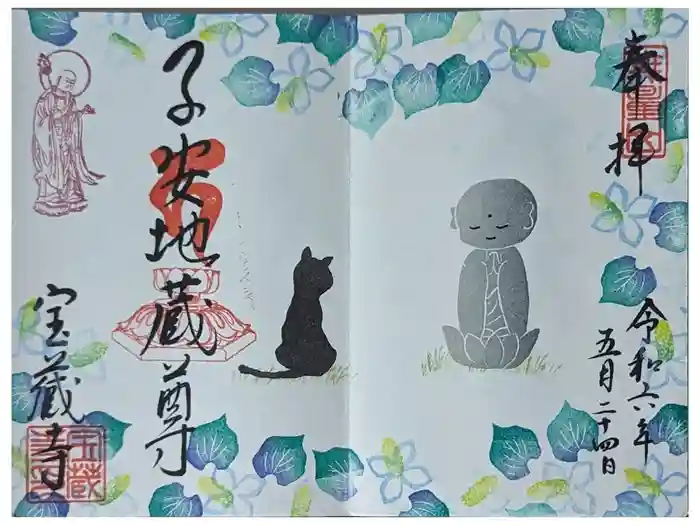 奉拝
令和六年
五月二十四日
子安地蔵尊
宝蔵寺